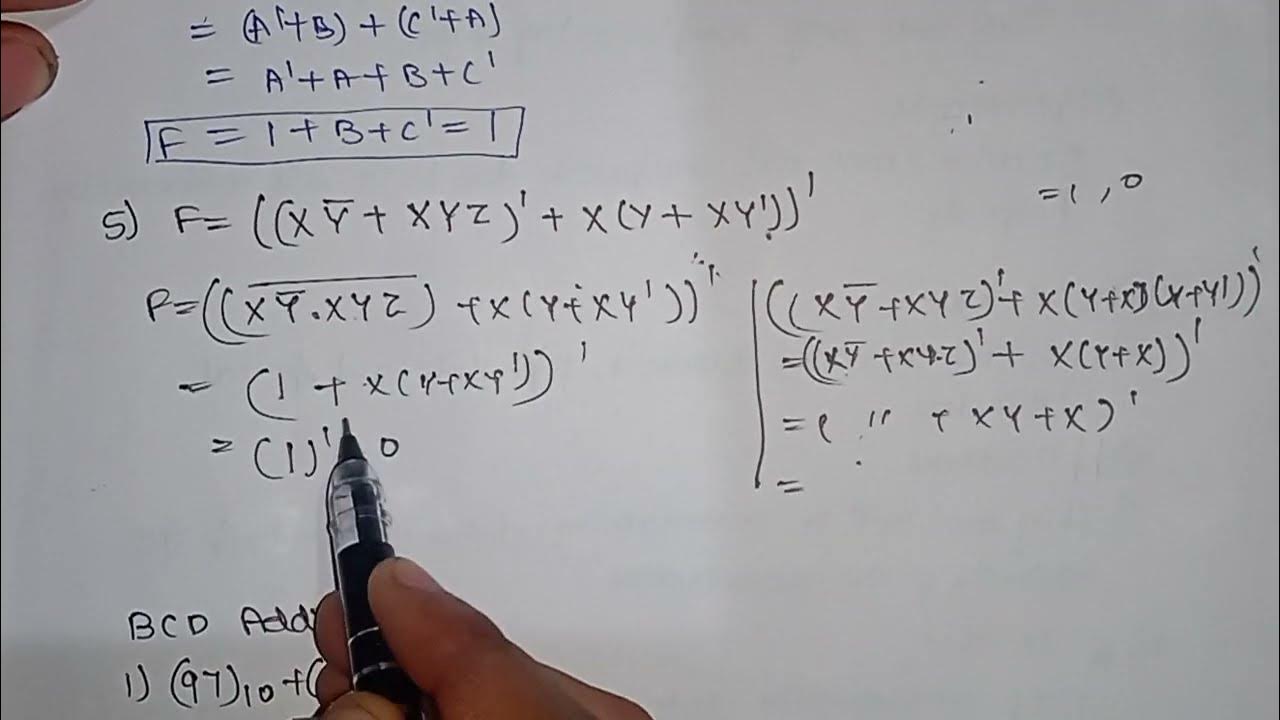 = (A'+B) + (C'+A)
= A'+A+B+C'
F = 1+B+C' = 1
5) F= ((XY̅ + XYZ)' + X(Y + XY'))'
=1, 0
F=((\overline{XY̅.XYZ}) + X(Y+XY'))'
= (1 + X(Y+XY'))'
= (1)' 0
((XY̅+XYZ)'+ X(Y+X)(Y+Y'))'
=((XY̅+XYZ)'+ X(Y+X))'
=( " + XY+X)'
=
BCD Add
1) (97)₁₀+(